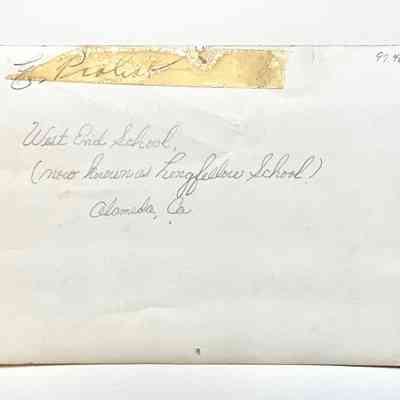 West End School,
(now known as Longfellow School)
Alameda, Ca